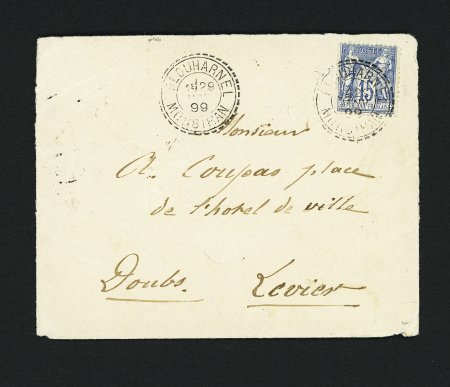 PLOUHARNEL
29
99
MORBIHAN
POSTE
15
PLOUHARNEL
99
MORBIHAN
Monsieur
A. Coupas place
de l'hotel de ville
Doubs. Levier